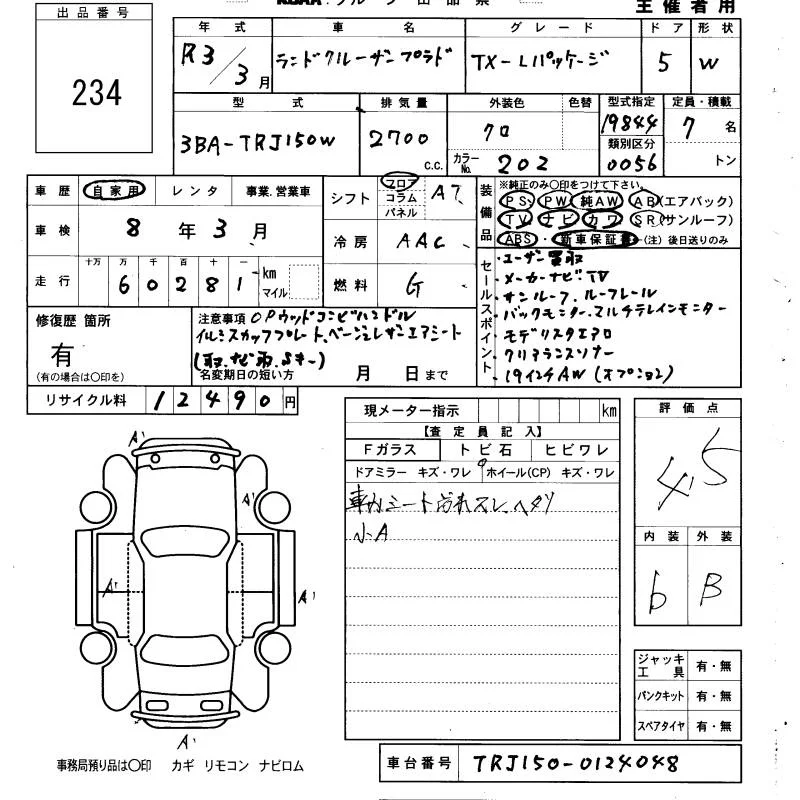 主催者用
出品番号
234
年式 車名 グレード ドア 形状
R3/3月 ランドクルーザープラド TX-Lパッケージ 5 W
型式 排気量 外装色 色替 型式指定 定員・積載
3BA-TRJ150W 2700 c.c. クロ 19844 7名
類別区分
カラーNo. 202 0056 トン
車歴 自家用 レンタ 事業.営業車
車検 8年3月
走行 十万 万 千 百 十 一
60281 km
マイル
シフト フロア コラム パネル AT
冷房 AAC
燃料 G
装備品
※純正のみ○印をつけて下さい。
PS PW 純AW AB(エアバック)
TV ナビ カワ SR(サンルーフ)
ABS・新車保証書(注)後日送りのみ
セールスポイント
・ユーザー買取
・メーカーナビTV
・サンルーフ.ルーフレール
・バックモニター.マルチテレインモニター
・モデリスタエアロ
・クリアランスソナー
・19インチAW(オプション)
修復歴 箇所
有
(有の場合は○印を)
注意事項 OPウッドコンビハンドル
イルミスカッフプレート、ベージュレザーエアシート
名変期日の短い方 月 日まで
リサイクル料 12490円
現メーター指示 km
【査定員記入】
Fガラス トビ石 ヒビワレ
ドアミラー キズ・ワレ ホイール(CP) キズ・ワレ
車内シート汚れスレ、ヘタリ
小A
評価点
4.5
内装 外装
b B
A'
A'
A'
A'
A'
ジャッキ工具 有・無
パンクキット 有・無
スペアタイヤ 有・無
事務局預り品は○印 カギ リモコン ナビロム
車台番号 TRJ150-0124048